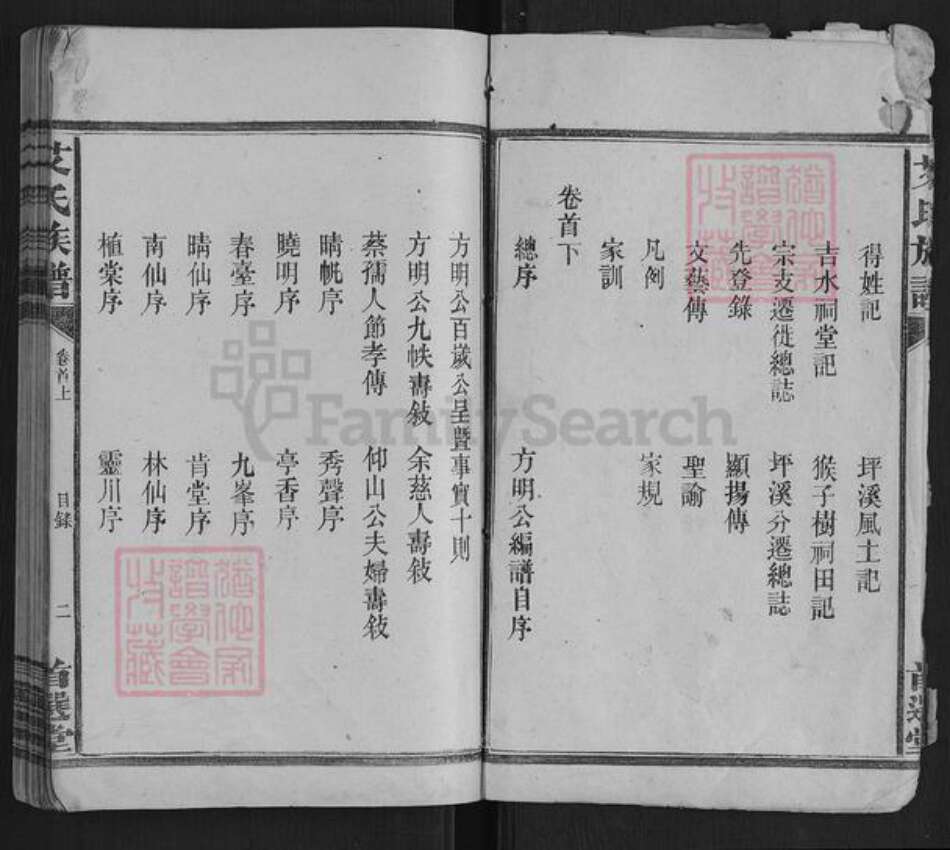 得姓記 坪溪風土記
吉水祠堂記 猴子樹祠田記
宗支遷徙總誌 坪溪分遷總誌
先登錄 顯揚傳
文藝傳 聖諭
凡例 家規
家訓
卷首下
總序 方明公編譜自序
方明公百歲公呈暨事實十則
方明公九帙壽敍 余慈人壽敍
蔡孺人節孝傳 仰山公夫婦壽敍
晴帆序 秀聲序
曉明序 亭香序
春臺序 九峯序
晴仙序 肯堂序
南仙序 林仙序
植棠序 靈川序
艾氏族譜 卷首上 目錄 二 首選堂
FamilySearch